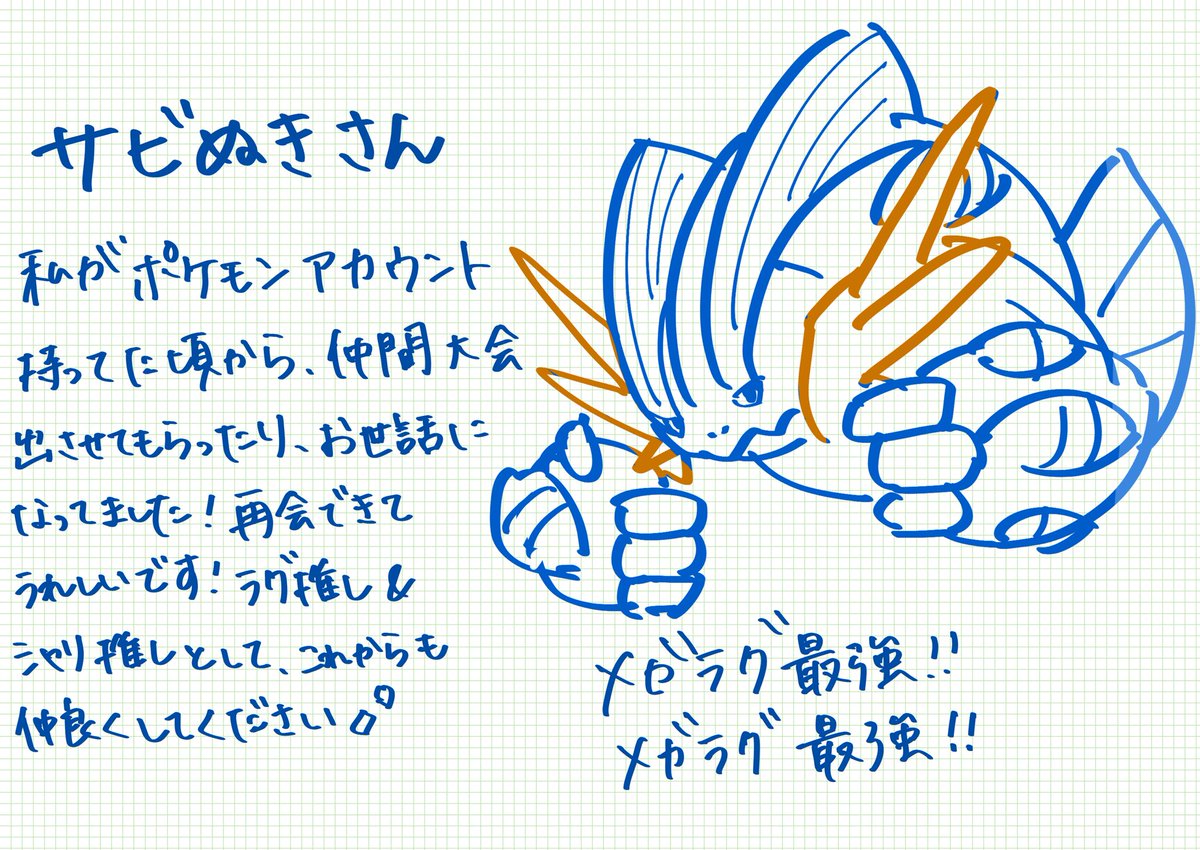 サビぬきさん
私がポケモンアカウント
持ってた頃から、仲間大会
出させてもらったり、お世話に
なってました！再会できて
うれしいです！ラグ推し&
シャリ推しとして、これからも
仲良くしてください
メガラグ最強!!
メガラグ最強!!